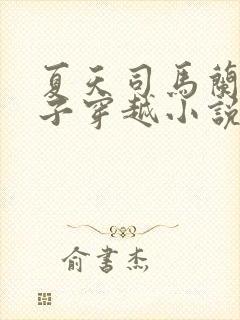 夏天司馬蘭
子穿越小說
俞書杰